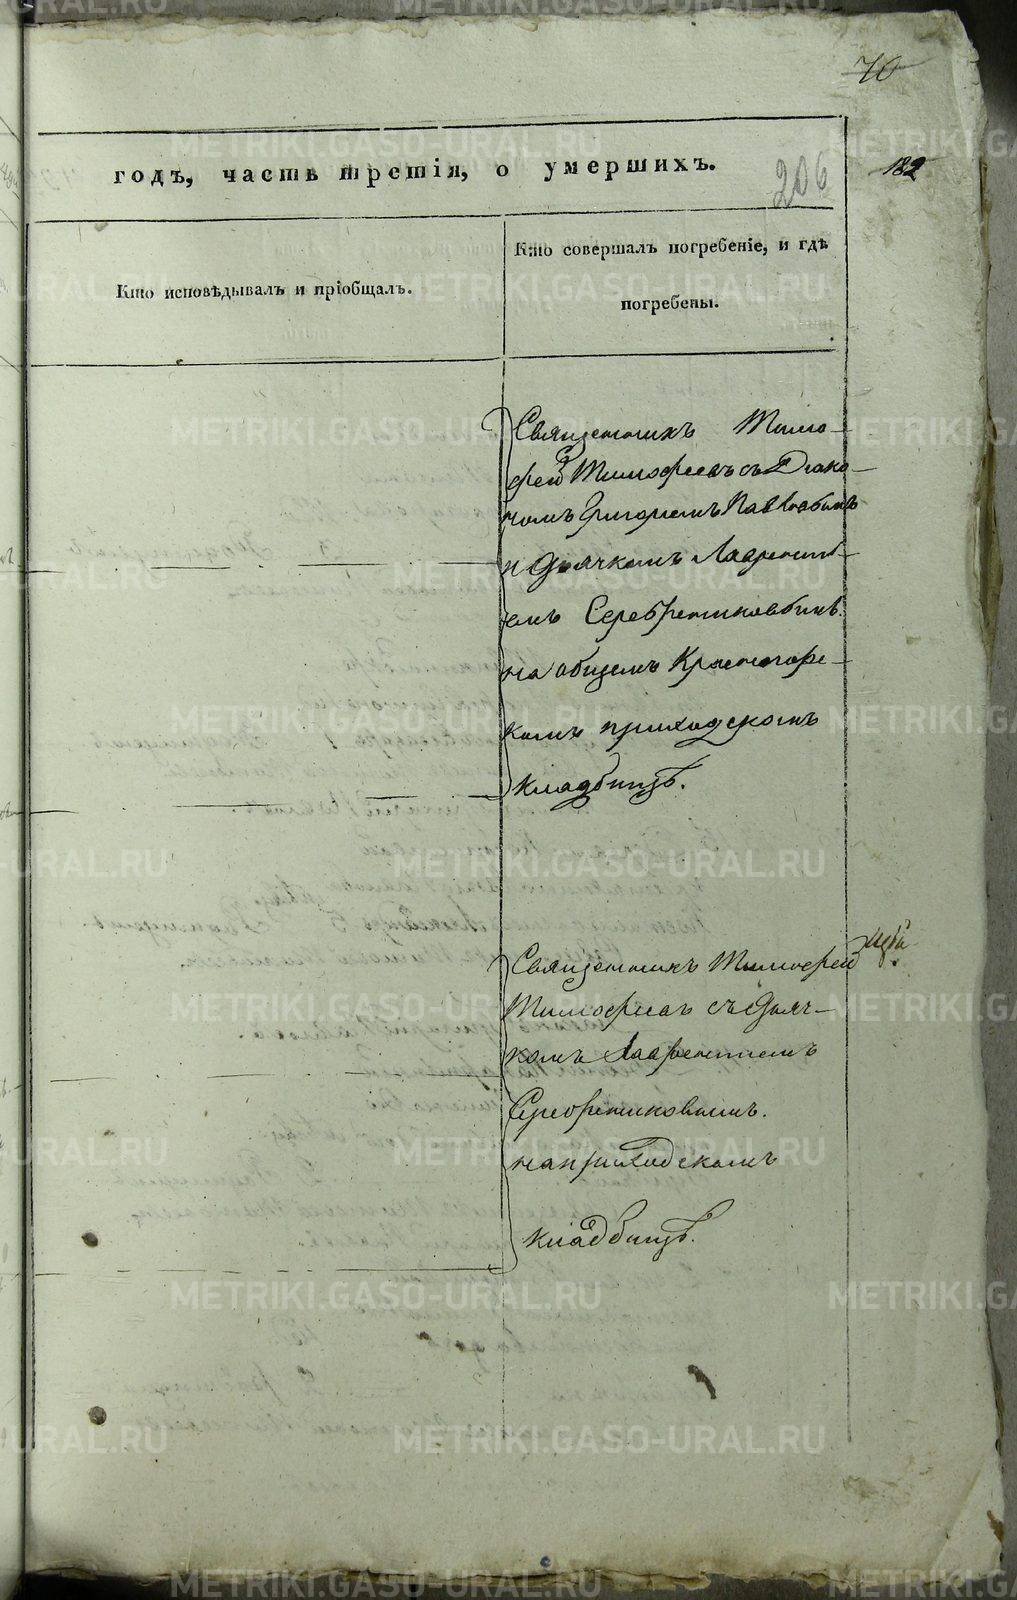 70
годъ, часть третія, о умершихъ.
206
182
Кто исповѣдывалъ и пріобщалъ.
Кто совершалъ погребеніе, и гдѣ
погребены.
Священникъ Тимо-
фей Тимофеевъ съ Діако-
номъ Григорьемъ Павловымъ
и Дьячкомъ Лавренть-
емъ Серебрениковымъ
на общемъ Красногорс-
комъ приходскомъ
кладбищѣ.
Священникъ Тимофей
Тимофеевъ съ Дьяч-
комъ Лаврентіемъ
Серебрениковымъ.
на приходскомъ
кладбищѣ.
METRIKI.GASO-URAL.RU